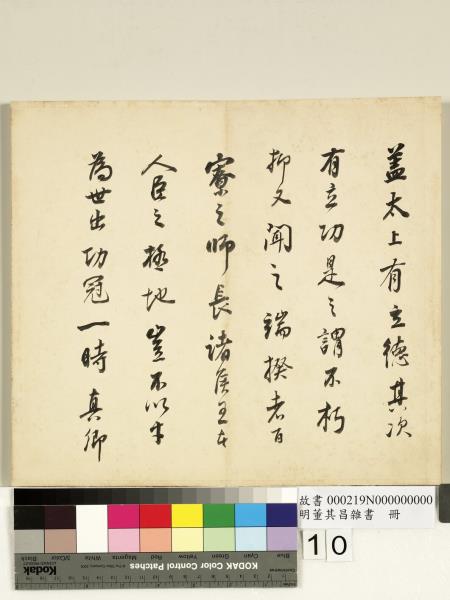 蓋太上有立德其次
有立功是之謂不朽
抑又聞之端揆者百
寮之師長諸侯王者
人臣之極地豈不以才
為世出功冠一時真卿
故書 000219N000000000
明董其昌雜書 冊
10
KODAK Color Control Patches
Blue Cyan Green Yellow Red Magenta White 3/Color Black